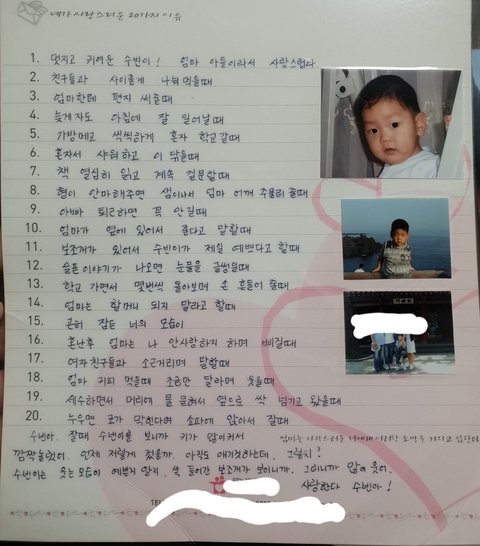 네가 사랑스러운 20가지 이유
1. 멋지고 귀여운 수빈이! 엄마 아들이라서 사랑스럽다
2. 친구들과 사이좋게 나눠먹을때
3. 엄마한테 편지 써줄때
4. 늦게 자도 아침에 잘 일어날때
5. 가방메고 씩씩하게 혼자 학교갈때
6. 혼자서 샤워하고 이 닦을때
7. 책 열심히 읽고 계속 질문할때
8. 형이 안마해주면 샘이나서 엄마 어깨 주물러 줄때
9. 아빠 퇴근하면 꼭 안길때
10. 엄마가 옆에 있어서 좋다고 말할때
11. 보조개가 있어서 수빈이가 제일 예쁘다고 할때
12. 슬픈 이야기가 나오면 눈물을 글썽일때
13. 학교 가면서 몇번씩 돌아보며 손 흔들어 줄때
14. 엄마는 할머니 되지 말라고 할때
15. 곤히 잠든 너의 모습이
16. 혼난후 엄마는 나 안사랑하지 하며 삐질때
17. 여자친구들과 소근거리며 말할때
18. 엄마 커피 먹을때 조금만 달라며 웃을때
19. 세수하면서 머리에 물 묻혀서 옆으로 싹 넘기고 왔을때
20. 누우면 코가 막힌다며 소파에 앉아서 잘때
수빈아. 잘때 수빈이를 보니까 키가 많이커서
엄마는 사랑스러운 너에게 이러한 소망을 가지고 있단다
깜짝놀랬어. 언제 저렇게 컸을까. 아직도 애기것하는데. 그렇지?
수빈이는 웃는모습이 예쁜거 알지. 쏙 들어간 보조개가 보이니까. 그러니까 많이 웃어.
사랑한다 수빈아!
TEL